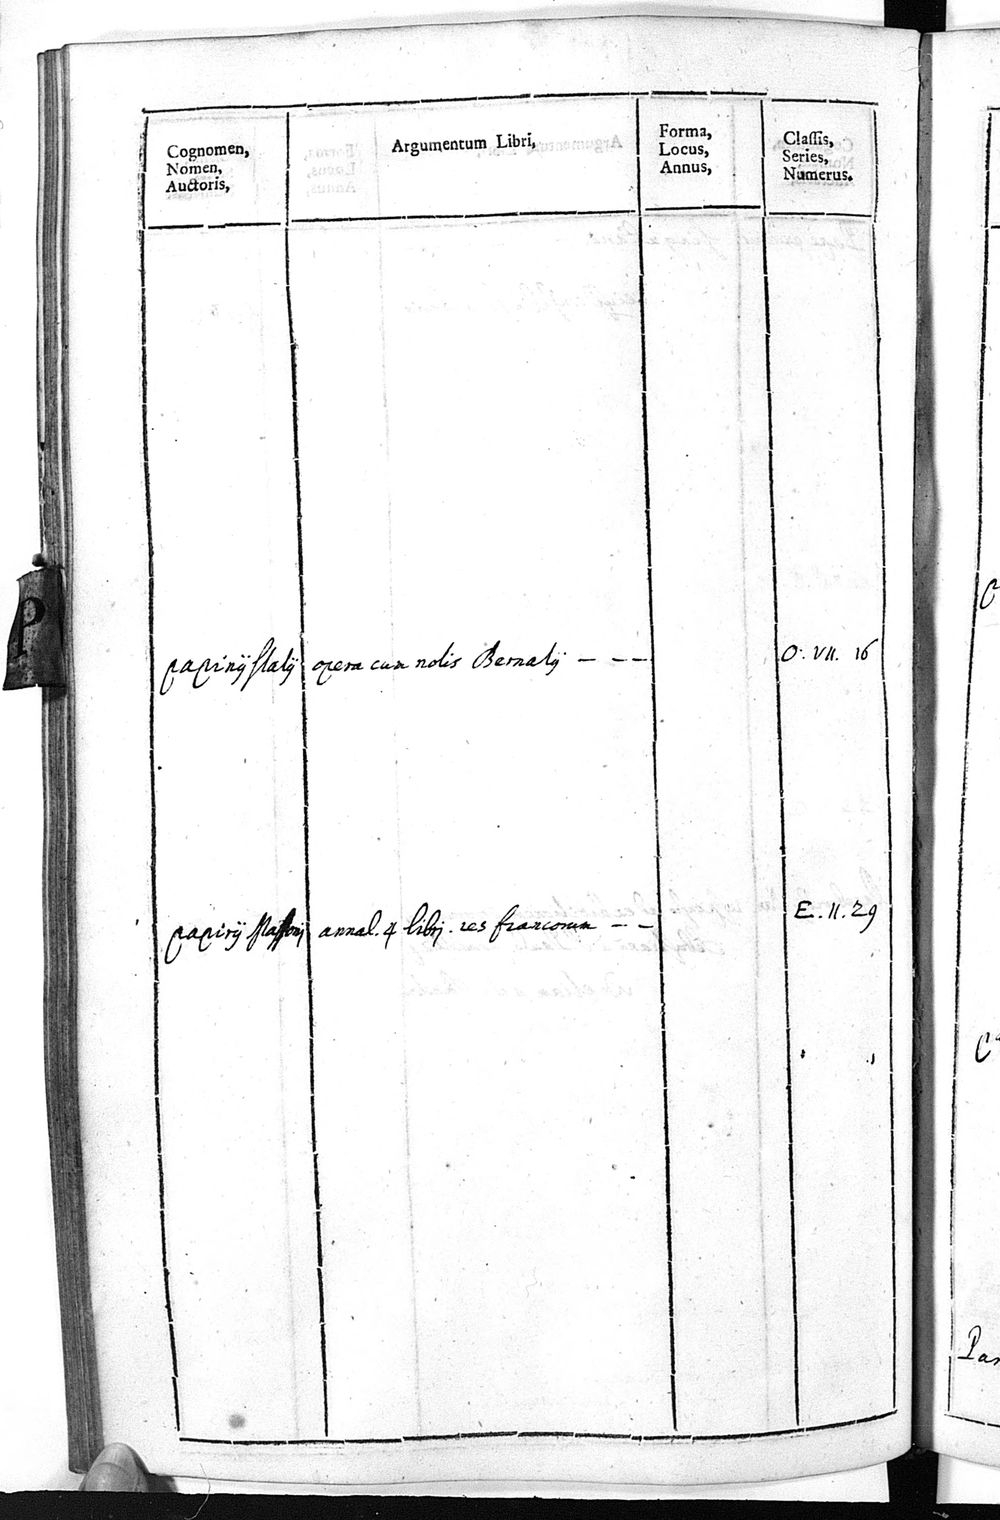 Cognomen,
Nomen,
Auctoris,
Argumentum Libri,
Forma,
Locus,
Annus,
Classis,
Series,
Numerus.
P
papinij statij opera cum notis Bernatij - - - O. VII. 16
papirij massonij annal. 4 librj. res francorum - - - E. II. 29